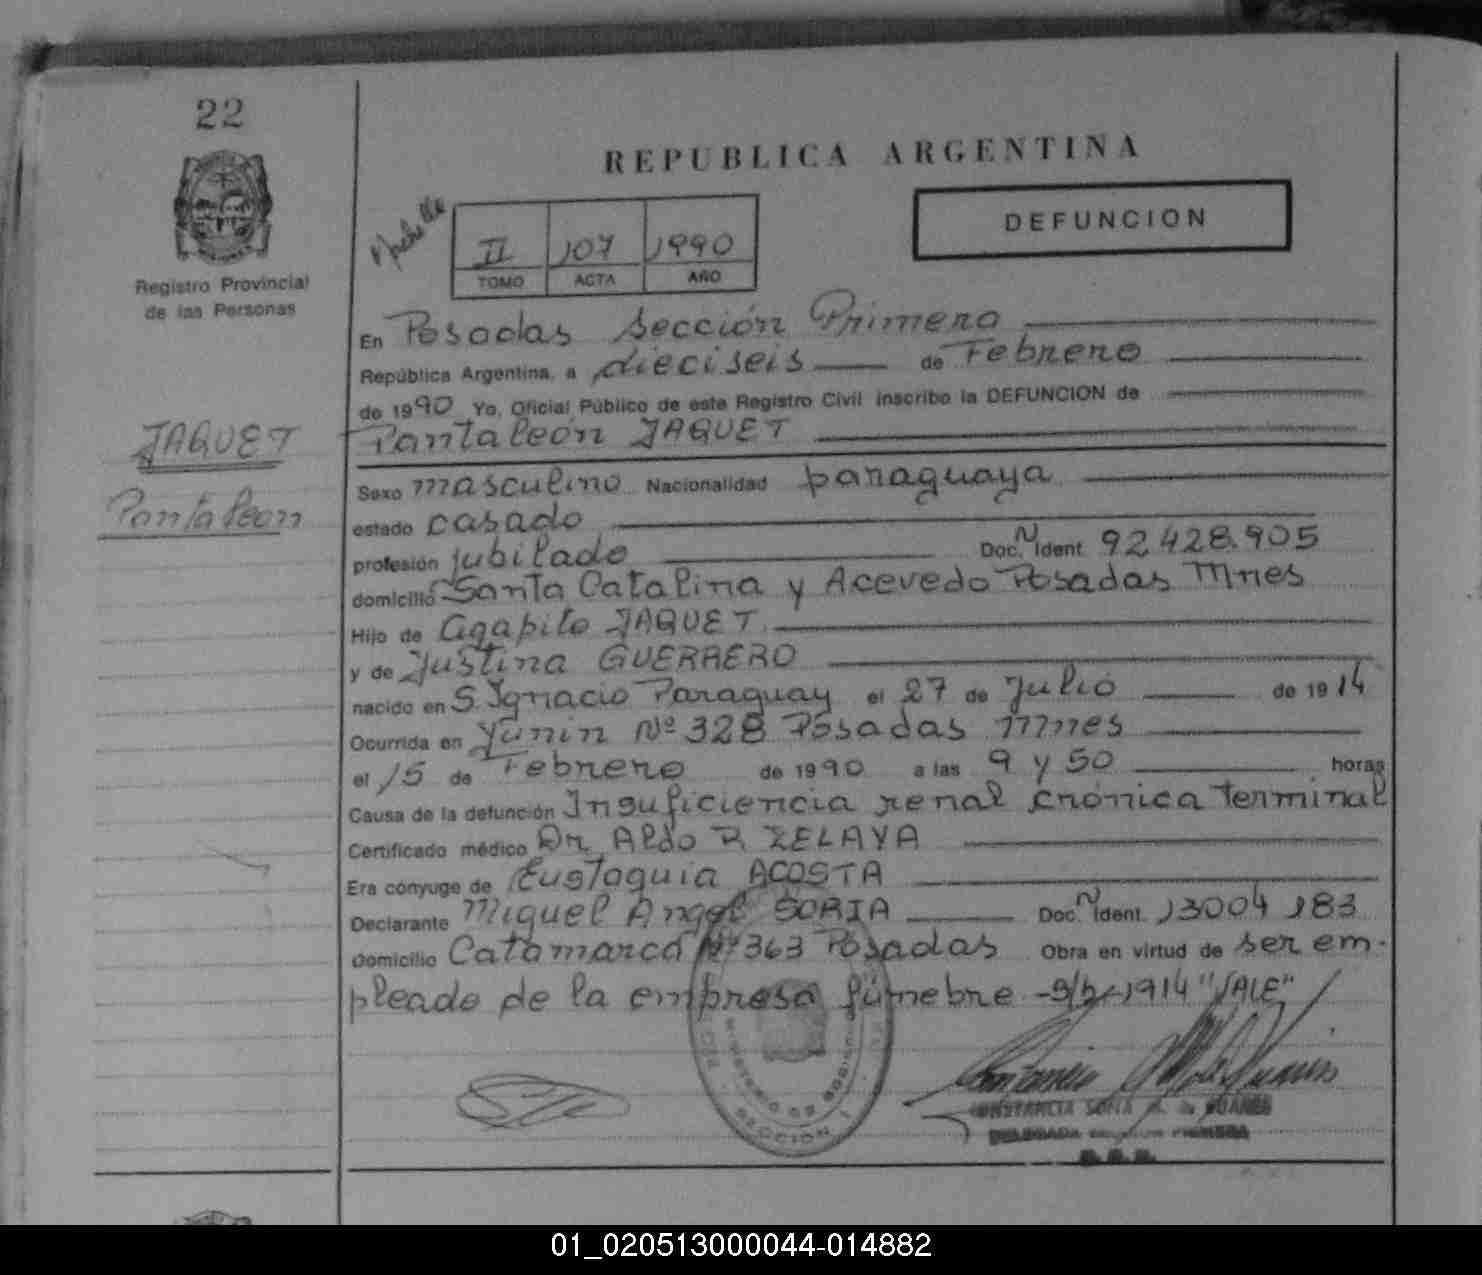 22
REPUBLICA ARGENTINA
DEFUNCION
II 107 1990
TOMO ACTA AÑO
Registro Provincial
de las Personas
En Posadas Sección Primera
República Argentina, a dieciseis de Febrero
de 1990 Yo, Oficial Público de este Registro Civil inscribo la DEFUNCION de
Pantaleón JAQUET
JAQUET
Pantaleon
Sexo masculino Nacionalidad paraguaya
estado casado
profesión jubilado Doc. N Ident 92.428.905
domicilio Santa Catalina y Acevedo Posadas Mnes
Hijo de Agapito JAQUET
y de Justina GUERRERO
nacido en S. Ignacio Paraguay el 27 de Julio de 1914
Ocurrida en Junin Nº 328 Posadas Mnes
el 15 de Febrero de 1990 a las 9 y 50 horas
Causa de la defunción Insuficiencia renal crónica terminal
Certificado médico Dr. Aldo R. ZELAYA
Era cónyuge de Eustaquia ACOSTA
Declarante Miguel Angel SORIA Doc. N Ident. 13004183
Domicilio Catamarca Nº 363 Posadas Obra en virtud de ser em-
pleado de la empresa fúnebre 1914 "VALE"
MINISTERIO DE GOBIERNO
SECCION I
01_020513000044-014882